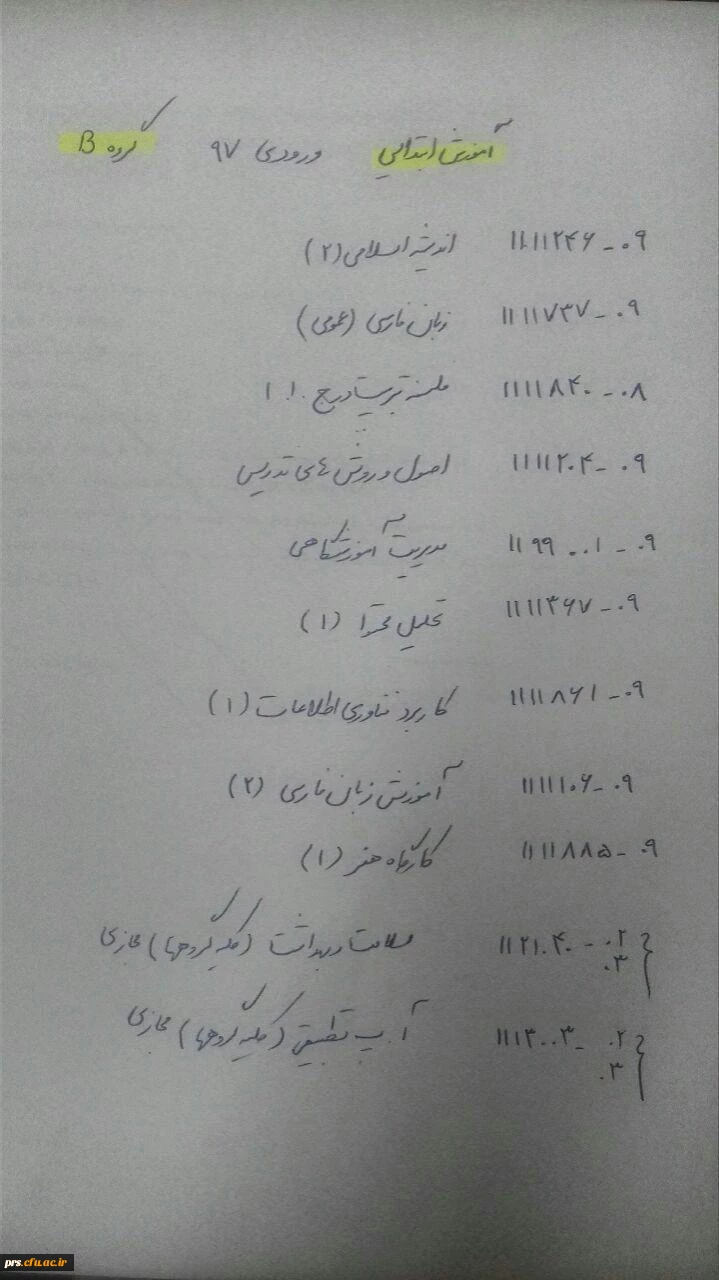 آموزش ابتدایی ورودی ۹۷ گروه B
۱۱۱۱۲۴۶ - ۰۹ اندیشه اسلامی (۲)
۱۱۱۱۷۳۷ - ۰۹ زبان فارسی (عمومی)
۱۱۱۱۸۴۰ - ۰۸ فلسفه تربیت در ج . ا . ا
۱۱۱۱۲۰۴ - ۰۹ اصول و روش های تدریس
۱۱۹۹۰۰۱ - ۰۹ مدیریت آموزشگاهی
۱۱۱۱۳۶۷ - ۰۹ تحلیل محتوا (۱)
۱۱۱۱۸۶۱ - ۰۹ کاربرد فناوری اطلاعات (۱)
۱۱۱۱۱۰۶ - ۰۹ آموزش زبان فارسی (۲)
۱۱۱۱۸۸۵ - ۰۹ کارگاه هنر (۱)
۱۱۲۱۰۴۰ - ۰۲ سلامت و بهداشت (کلیه گروهها) مجازی
۰۳
۱۱۱۳۰۰۳ - ۰۲ آ . پ تطبیقی (کلیه گروهها) مجازی
۰۳
prs.cfu.ac.ir